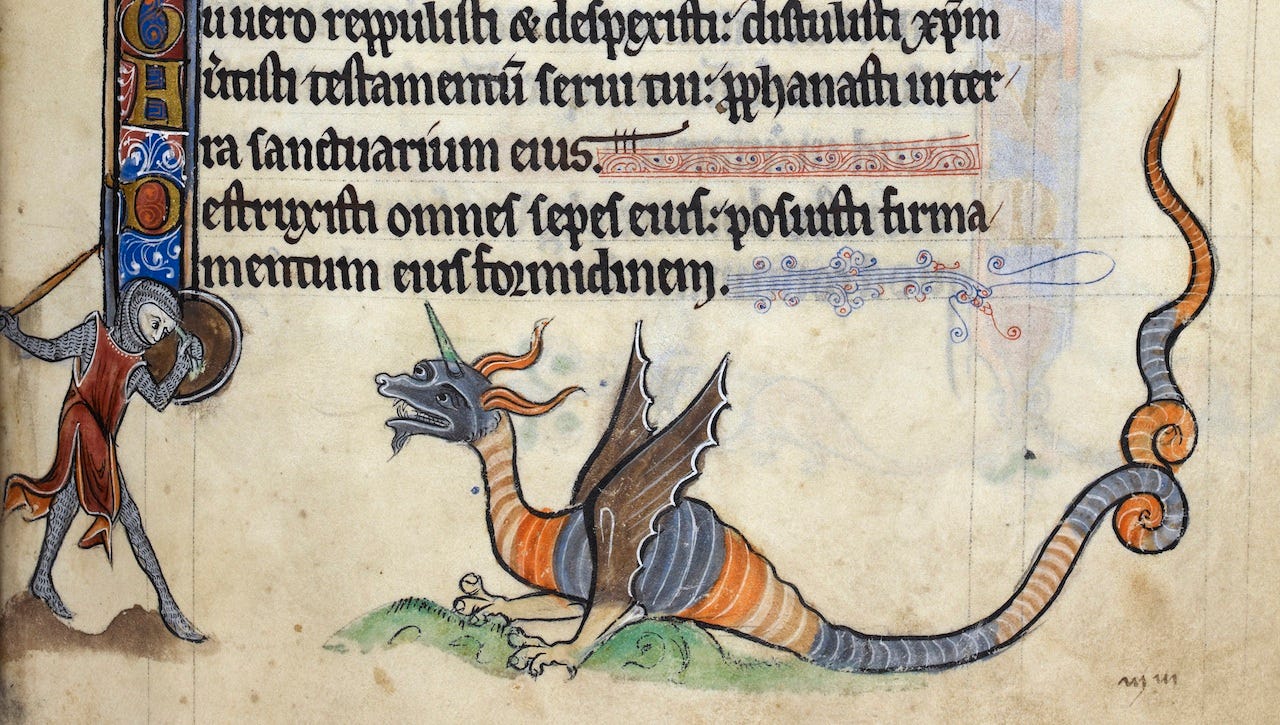 Tu uero reppulisti & despexisti: distulisti xp̄m
Aũtisti testamentū serui tui: ꝓphanasti in ter/
ra sanctuarium eius.
Destruxisti omnes sepes eius: posuisti firma/
mentum eius formidinem.